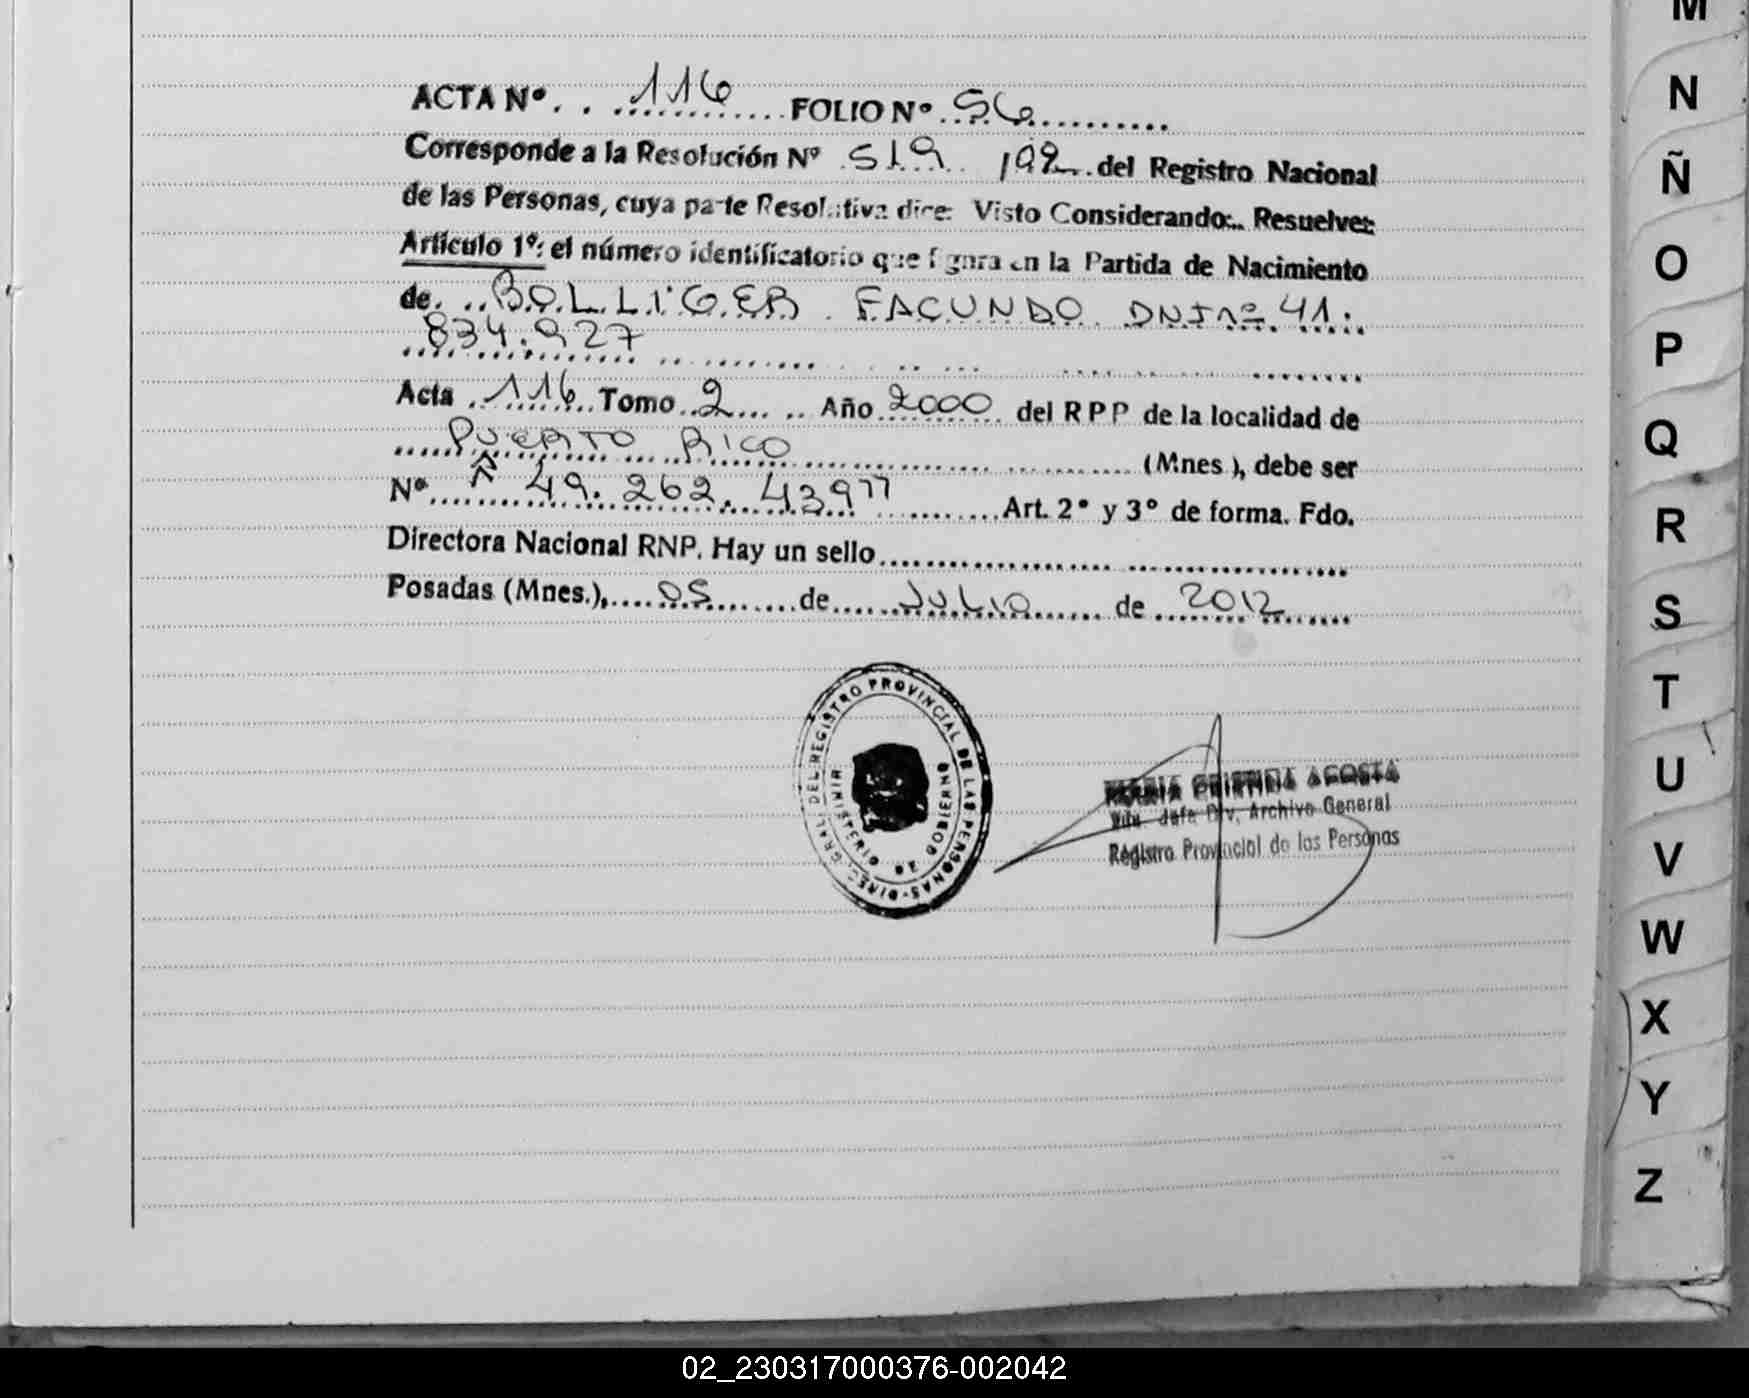 ACTA Nº. . ...116.... FOLIO Nº...56..........
Corresponde a la Resolución Nº .519.. 192.. del Registro Nacional
de las Personas, cuya parte Resolutiva dice: Visto Considerando:.. Resuelve:
Artículo 1º: el número identificatorio que figura en la Partida de Nacimiento
de. ..BOLLIGER. FACUNDO. DNI Nº 41.
834.927
Acta ..116.. Tomo..2.... .. Año 2000 del R P P de la localidad de
....PUERTO RICO.... (Mnes.), debe ser
Nº.... " 49.262.439" ..........Art. 2º y 3º de forma. Fdo.
Directora Nacional RNP. Hay un sello....................
Posadas (Mnes.),....05........de.....JULIO...... de ..2012......
DIREC. GRAL. DEL REGISTRO PROVINCIAL DE LAS PERSONAS
MINISTERIO DE GOBIERNO
MARIA CRISTINA ACOSTA
Jefe Div. Archivo General
Registro Provincial de las Personas
M
N
Ñ
O
P
Q
R
S
T
U
V
W
X
Y
Z
02_230317000376-002042